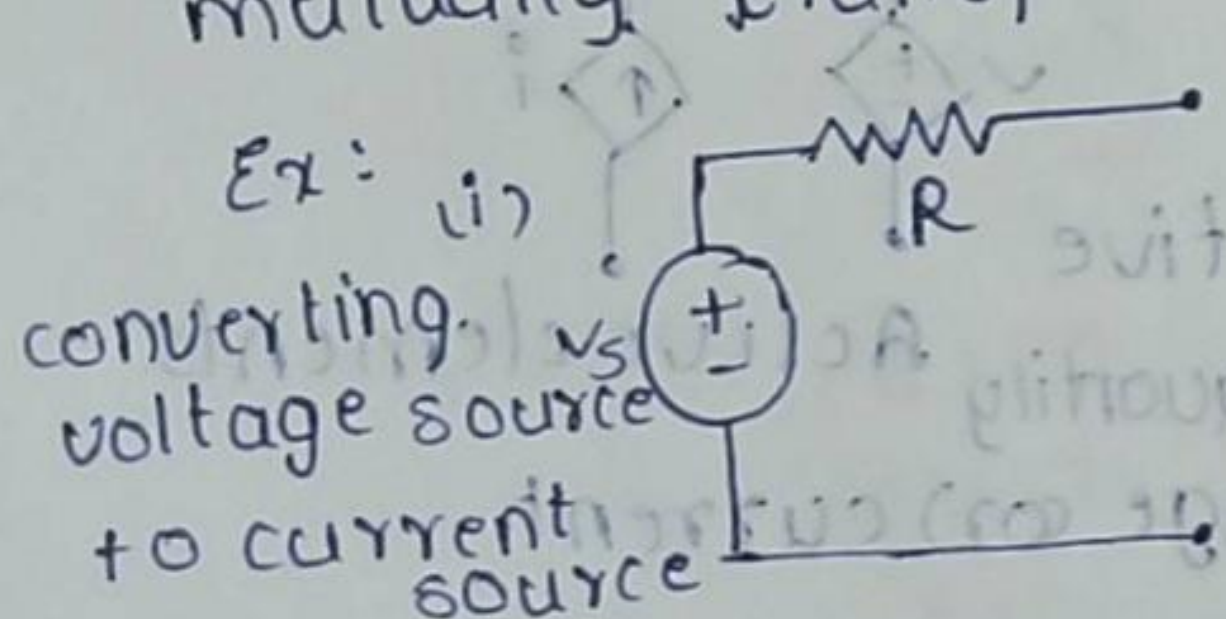 Ex: (i)
R
converting Vs + -
voltage source
to current
source